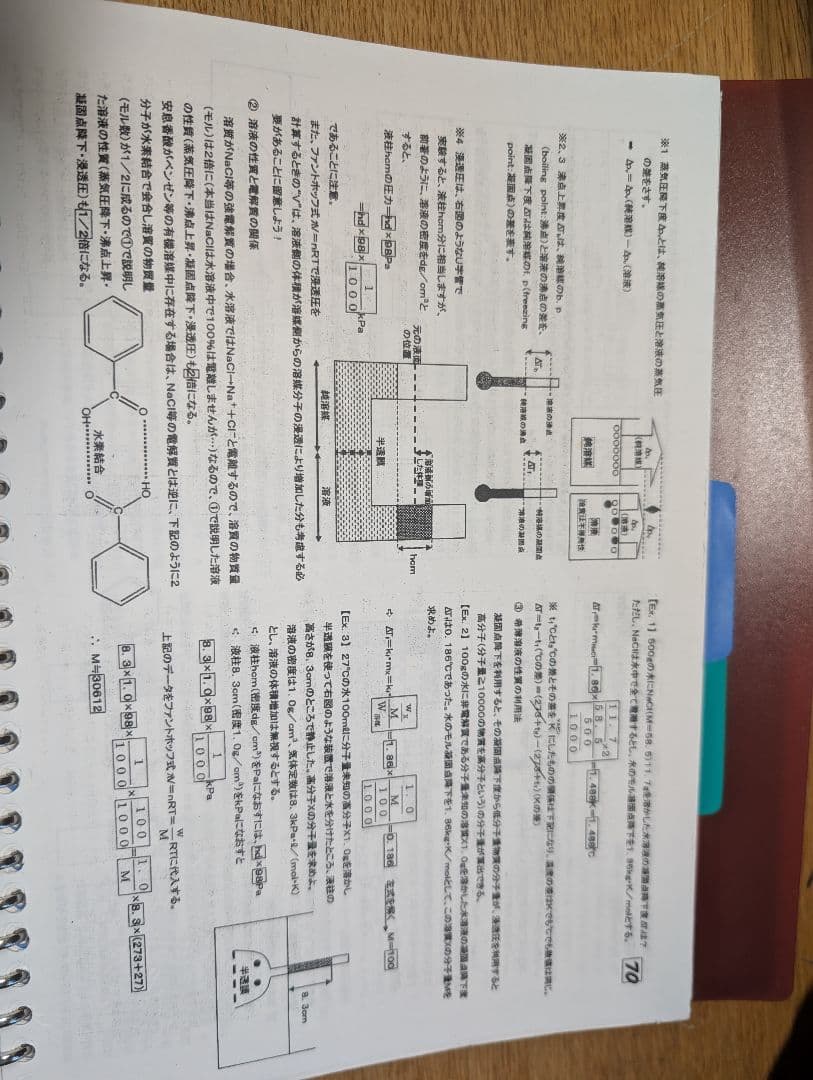 70
※1 蒸気圧降下度Δpᵥとは、純溶媒の蒸気圧と溶液の蒸気圧
の差をさす。
➡ Δpᵥ=Δpᵥ(純溶媒)−Δpᵥ(溶液)
Δpᵥ
(純溶媒)
純溶媒
(溶液)
溶液
※2, 3 沸点上昇度ΔTᵦは、純溶媒のb. p
(boiling point:沸点)と溶液の沸点の差を、
凝固点降下度ΔTfは純溶媒のf. p(freezing
point:凝固点)の差を表す。
ΔTᵦ
溶液の沸点
純溶媒の沸点
ΔTf
純溶媒の凝固点
溶液の凝固点
※4 浸透圧は、右図のようなU字管で
実験すると、液柱hcm分に相当しますが、
前著のように、溶液の密度をdg/cm³と
すると、
液柱hcmの圧力=hd×98Pa
=hd×98×1/1000kPa
であることに注意。
元の液面
の位置
溶液側の増加
した体積
hcm
半透膜
純溶媒
溶液
また、ファントホッフ式πV=nRTで浸透圧を
計算するときの“V”は、溶液側の体積が溶媒側からの溶媒分子の浸透により増加した分も考慮する必
要があることに留意しよう!
② 溶液の性質と電解質の関係
溶質がNaCl等の強電解質の場合、水溶液ではNaCl→Na⁺+Cl⁻と電離するので、溶質の物質量
(モル)は2倍に(本当はNaClは水溶液中で100%は電離しませんが…)なるので、①で説明した溶液
の性質(蒸気圧降下・沸点上昇・凝固点降下・浸透圧)も2倍になる。
安息香酸がベンゼン等の有機溶媒中に存在する場合は、NaCl等の電解質とは逆に、下記のように2
分子が水素結合で会合し溶質の物質量
(モル数)が1/2に成るので①で説明し
た溶液の性質(蒸気圧降下・沸点上昇・
凝固点降下・浸透圧)も1/2倍になる。
C
O
HO
OH
水素結合
O
C
【Ex. 1】500gの水にNaCl(M=58. 5)11. 7gを溶かした水溶液の凝固点降下度ΔTfは?
ただし、NaClは水中で全て電離するとし、水のモル凝固点降下を1. 86kg・K/molとする。
ΔTf=kf・mNaCl=1. 86×(11. 7/58. 5×2)/(500/1000)=1. 488K=1. 488℃
※ t₁℃とt₂℃の差とその差をKにしたものの関係は下記になり、温度の差はKでも℃でも数値は同じ。
ΔT=t₂−t₁(℃の差)=(273+t₂)−(273+t₁)(Kの差)
③ 希薄溶液の性質の利用法
凝固点降下を利用すると、その凝固点降下度から低分子量物質の分子量が、浸透圧を利用すると
高分子(分子量≧10000の物質を高分子という)の分子量が算出できる。
【Ex. 2】100gの水に非電解質である分子量未知の溶質X1. 0gを溶かした水溶液の凝固点降下度
ΔTfは0. 186℃であった。水のモル凝固点降下を1. 86kg・K/molとして、この溶質Xの分子量Mを
求めよ。
⇨ ΔTf=kf・mX=kf・(wX/M)/W溶媒=1. 86×(1. 0/M)/(100/1000)=0. 186 左式を解く→M=100
【Ex. 3】27℃の水100mℓに分子量未知の高分子X1. 0gを溶かし
半透膜を使って右図のような装置で溶液と水を分けたところ、液柱の
高さが8. 3cmのところで静止した。高分子Xの分子量を求めよ。
溶液の密度は1. 0g/cm³、気体定数は8. 3kPa・ℓ/(mol・K)
とし、溶液の体積増加は無視するとする。
⇨ 液柱hcm(密度dg/cm³)をPaになおすには、hd×98Pa
⇨ 液柱8. 3cm(密度1. 0g/cm³)をkPaになおすと
8. 3×1. 0×98×1/1000kPa
半透膜
8. 3cm
上記のデータをファントホッフ式πV=nRT=w/M RTに代入する。
8. 3×1. 0×98×1/1000×100/1000=1. 0/M×8. 3×(273+27)
∴ M≒30612